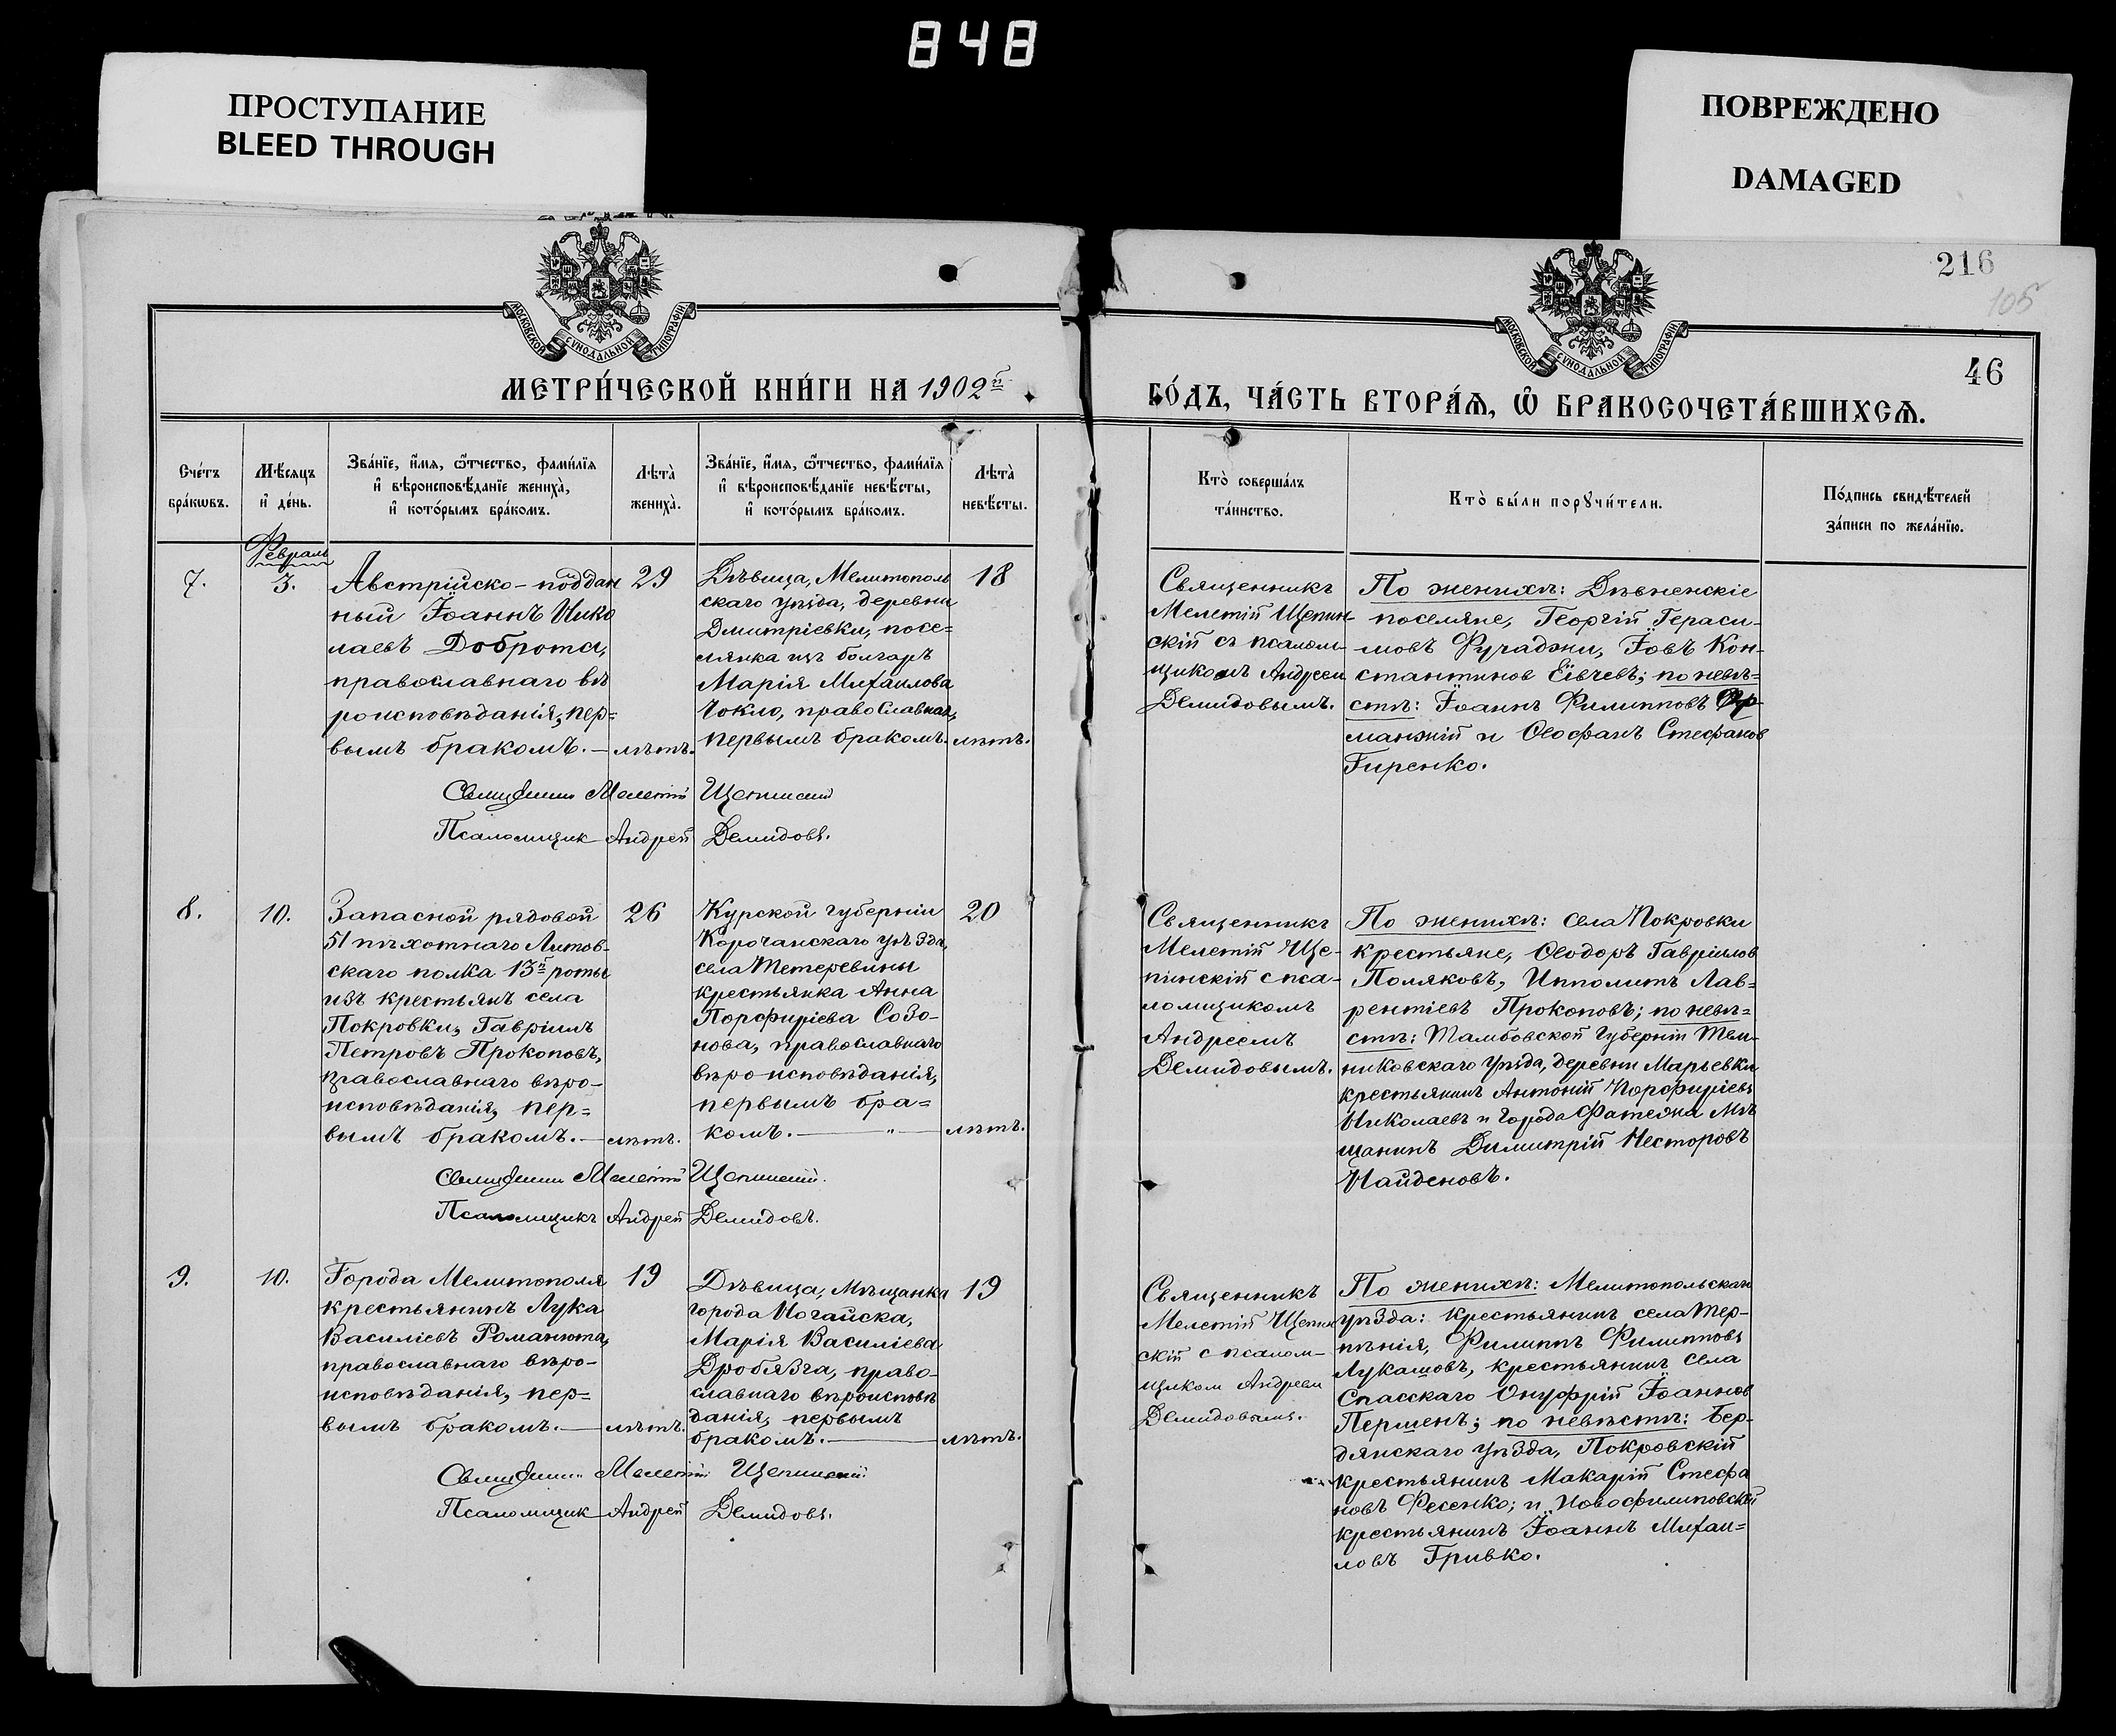 848
ПРОСТУПАНИЕ
BLEED THROUGH
ПОВРЕЖДЕНО
DAMAGED
216
105
46
МОСКОВСКОЙ СѴНОДАЛЬНОЙ ТИПОГРАФІИ
МЕТРИ́ЧЕСКОЙ КНИ́ГИ НА 1902й
МОСКОВСКОЙ СѴНОДАЛЬНОЙ ТИПОГРАФІИ
ГО́ДЪ, ЧА́СТЬ ВТОРА́Я, Ѡ БРАКОСОЧЕТА́ВШИХСѦ.
Сче́тъ
бра́кѡвъ.
Мѣ́сяцъ
и҆ де́нь.
Зва́нїе, и҆́мѧ, ѻ҆́тчество, фами́лїѧ
и҆ вѣроисповѣ́данїе жениха̀,
и҆ кото́рымъ бра́комъ.
Лѣта̀
жениха̀.
Зва́нїе, и҆́мѧ, ѻ҆́тчество, фами́лїѧ
и҆ вѣроисповѣ́данїе невѣ́сты,
и҆ кото́рымъ бра́комъ.
Лѣта̀
невѣ́сты.
Кто̀ соверша́лъ
та́инство.
Кто̀ бы́ли порꙋчи́тели.
По́дпись свидѣ́телей
за́писи по жела́нїю.
Февраль
7.
3.
Австрійско-поддан
ный Іоаннъ Нико
лаевъ Доброта,
православнаго вѣ
роисповѣданія, пер=
вымъ бракомъ.—
29
лѣтъ.
Дѣвица, Мелитополь
скаго уѣзда, деревни
Дмитріевки, посе=
лянка изъ болгаръ
Марія Михаилова
Чокло, православная,
первымъ бракомъ.
18
лѣтъ.
Священникъ
Мелетій Щепин-
скій съ псалом-
щикомъ Андреем
Демидовымъ.
По женихѣ: Дѣвненскіе
поселяне, Георгій Гераси-
мовъ Фучаджи, Іовъ Кон-
стантинов Евчевъ; по невѣ=
стѣ: Іоаннъ Филипповъ
манжій и Ѳеофанъ Стефанов
Гиренко.
Священникъ Мелетій Щепинскій
Псаломщик Андрей Демидовъ.
8.
10.
Запасной рядовой
51 пѣхотнаго Литов-
скаго полка 13й роты
изъ крестьянъ села
Покровки, Гавріилъ
Петровъ Прокоповъ,
православнаго вѣро-
исповѣданія, пер=
вымъ бракомъ.—
26
лѣтъ.
Курской губерніи
Корочанскаго уѣзда,
села Тетеревины
крестьянка Анна
Порфиріева Созо-
нова, православнаго
вѣроисповѣданія,
первымъ бра=
комъ. — „ —
20
лѣтъ.
Священникъ
Мелетій Ще-
пинскій с пса-
ломщикомъ
Андреемъ
Демидовымъ.
По женихѣ: села Покровки
крестьяне, Ѳеодоръ Гавріилов
Поляковъ, Ипполитъ Лав=
рентіевъ Прокоповъ; по невѣ=
стѣ: Тамбовской губерніи Тем-
никовскаго уѣзда, деревни Марьевки
крестьянинъ Антоній Порфиріевъ
Николаевъ и города Фатежа мѣ
щанинъ Димитрій Несторовъ
Найденовъ.
Священникъ Мелетій Щепинскій.
Псаломщикъ Андрей Демидовъ.
9.
10.
Города Мелитополя
крестьянинъ Лука
Василіевъ Романюта,
православнаго вѣро-
исповѣданія, пер=
вымъ бракомъ.—
19
лѣтъ.
Дѣвица, мѣщанка
города Ногайска,
Марія Василіева
Дробязга, право-
славнаго вѣроисповѣ
данія, первымъ
бракомъ.—
19
лѣтъ.
Священникъ
Мелетій Щепин
скій с псалом-
щиком Андреем
Демидовымъ.
По женихѣ: Мелитопольскаго
уѣзда: крестьянинъ села Тер-
пѣнія, Филиппъ Филипповъ
Лукашовъ, крестьянинъ села
Спасскаго Онуфрій Іоаннов
Першенъ; по невѣстѣ: Бер-
дянскаго уѣзда, Покровскій
крестьянинъ Макарій Стефа
новъ Фесенко; и Новофилиповскій
крестьянинъ Іоаннъ Михаи=
ловъ Гривко.
Священникъ Мелетій Щепинскій
Псаломщик Андрей Демидовъ.